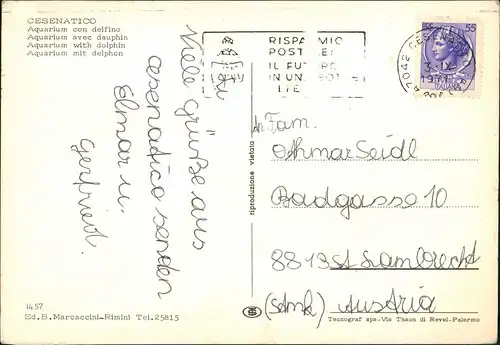 CESENATICO
Aquarium con delfino
Aquarium avec dauphin
Aquarium with dolphin
Aquarium mit delphon
Viele grüße aus
cesenatico senden
Elmar u.
Gertrieed.
1457
Ed.B.Marcaccini-Rimini Tel.25815
riproduzione vietata
RISPARMIO
POST
IL FUTURO
IN UN
47042 CESENATICO
3-IX
1971
55
ITALIANE
An Fam.
Othmar Seidl
Badgasse 10
8813 St Lambrecht
(Stmk) Austria
Tecnograf spa.-Via Thaon di Revel-Palermo